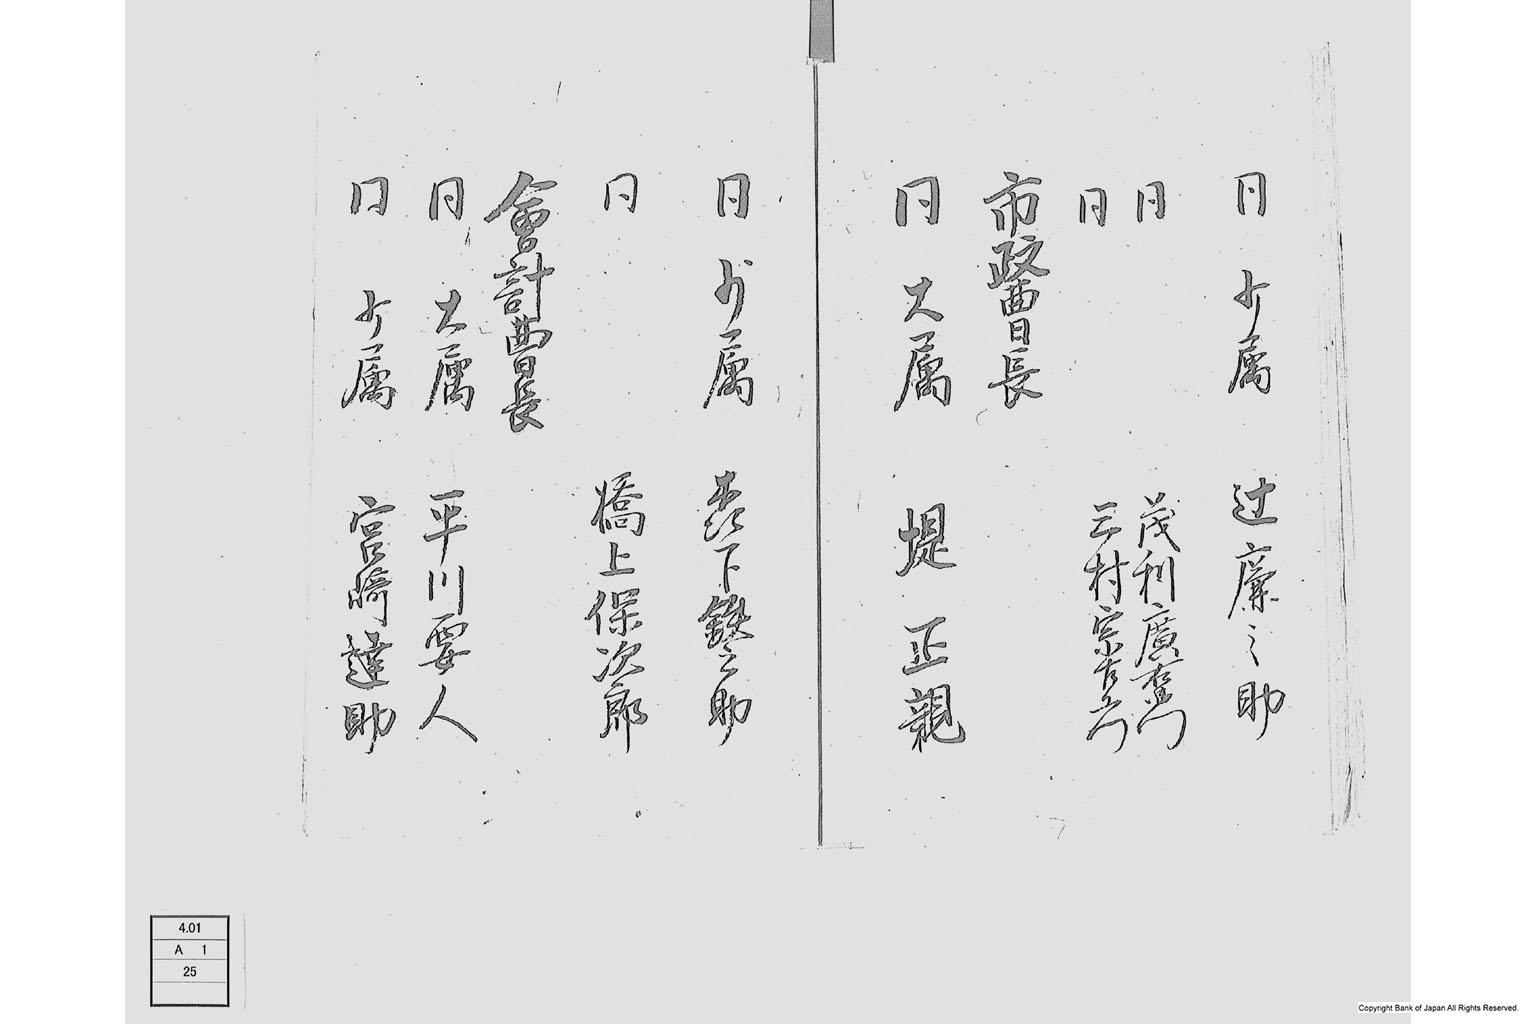 同 少属 辻廉之助
同 茂利廣衛門
同 三村宗右衛門
市政曹長
同 大属 堤正親
同 少属 森下鉄之助
同 橋上保次郎
會計曹長
同 大属 平川要人
同 少属 宮崎達助
4.01
A 1
25
Copyright Bank of Japan All Rights Reserved.